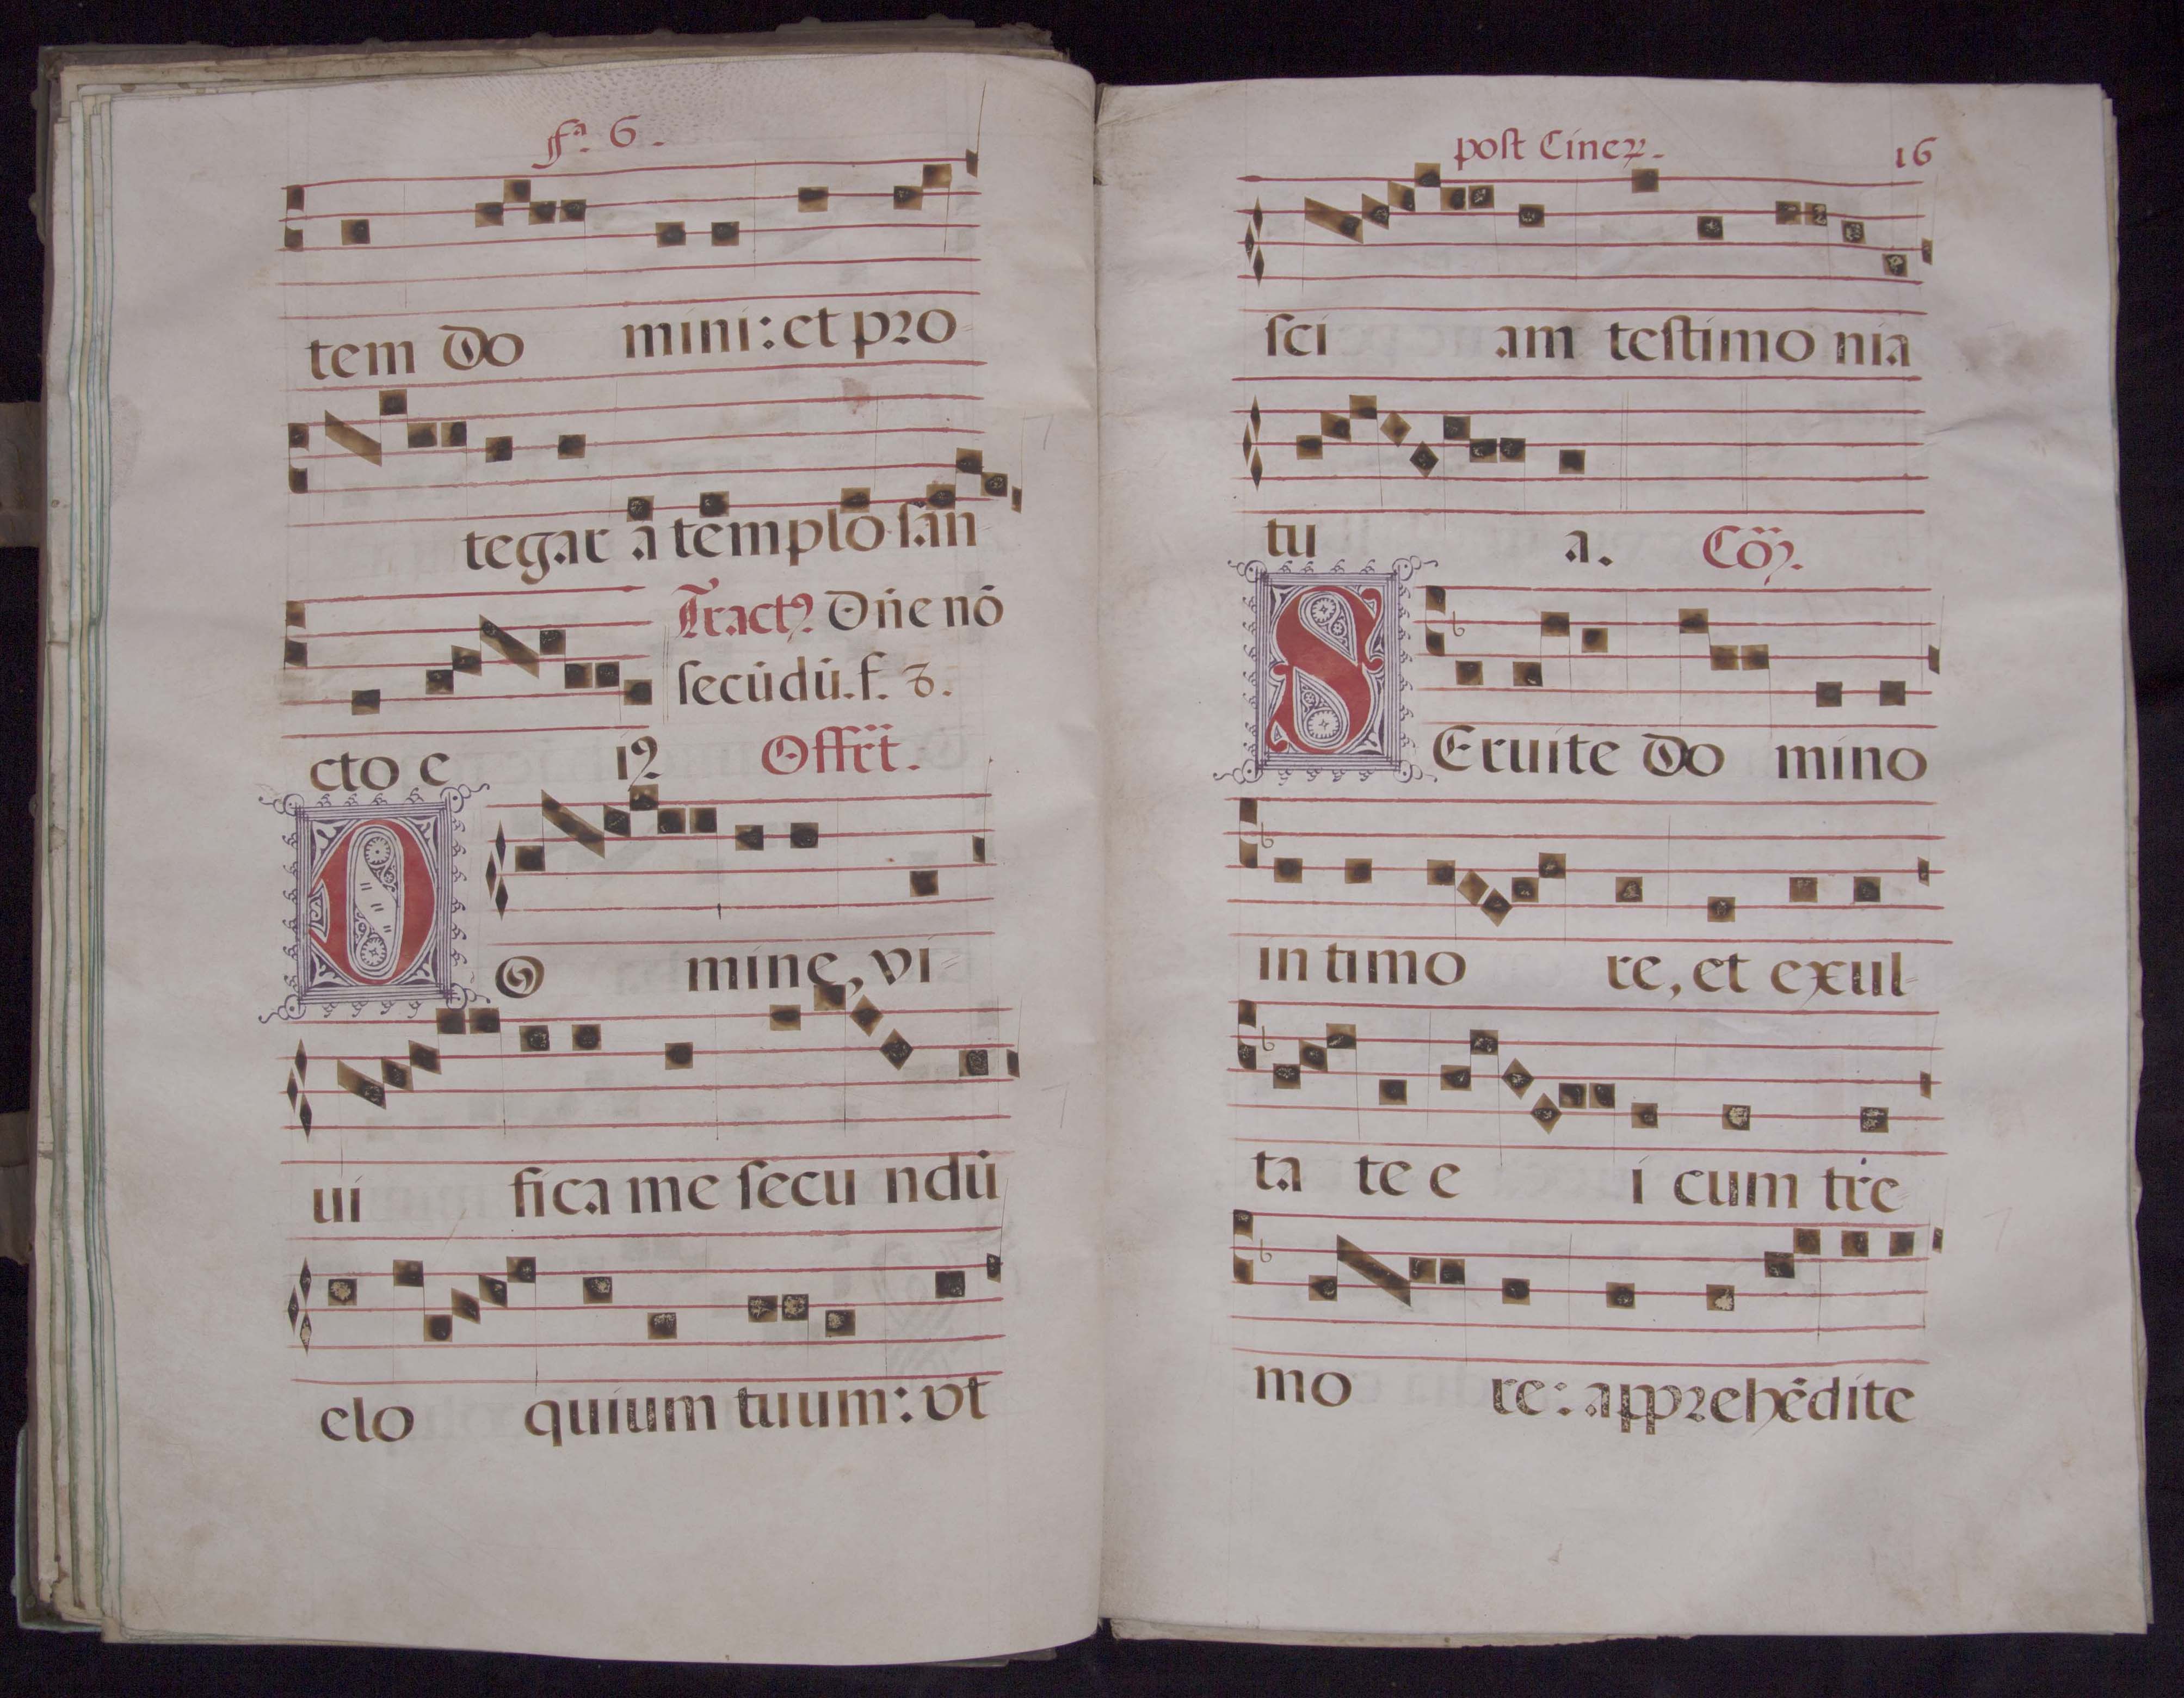 fª. 6.
tem do mini: et pro
tegar a templo san
Tractꝯ. Dñe nō
secūdū. f. 8.
cto e iꝯ Offrt.
DOmine, vi
ui fica me secu ndū
elo quium tuum: vt
post Cineꝝ. 16
sci am testimo nia
tu a. Cōꝫ.
SEruite do mino
in timo re, et exul
ta te e i cum tre
mo re: apprehēdite